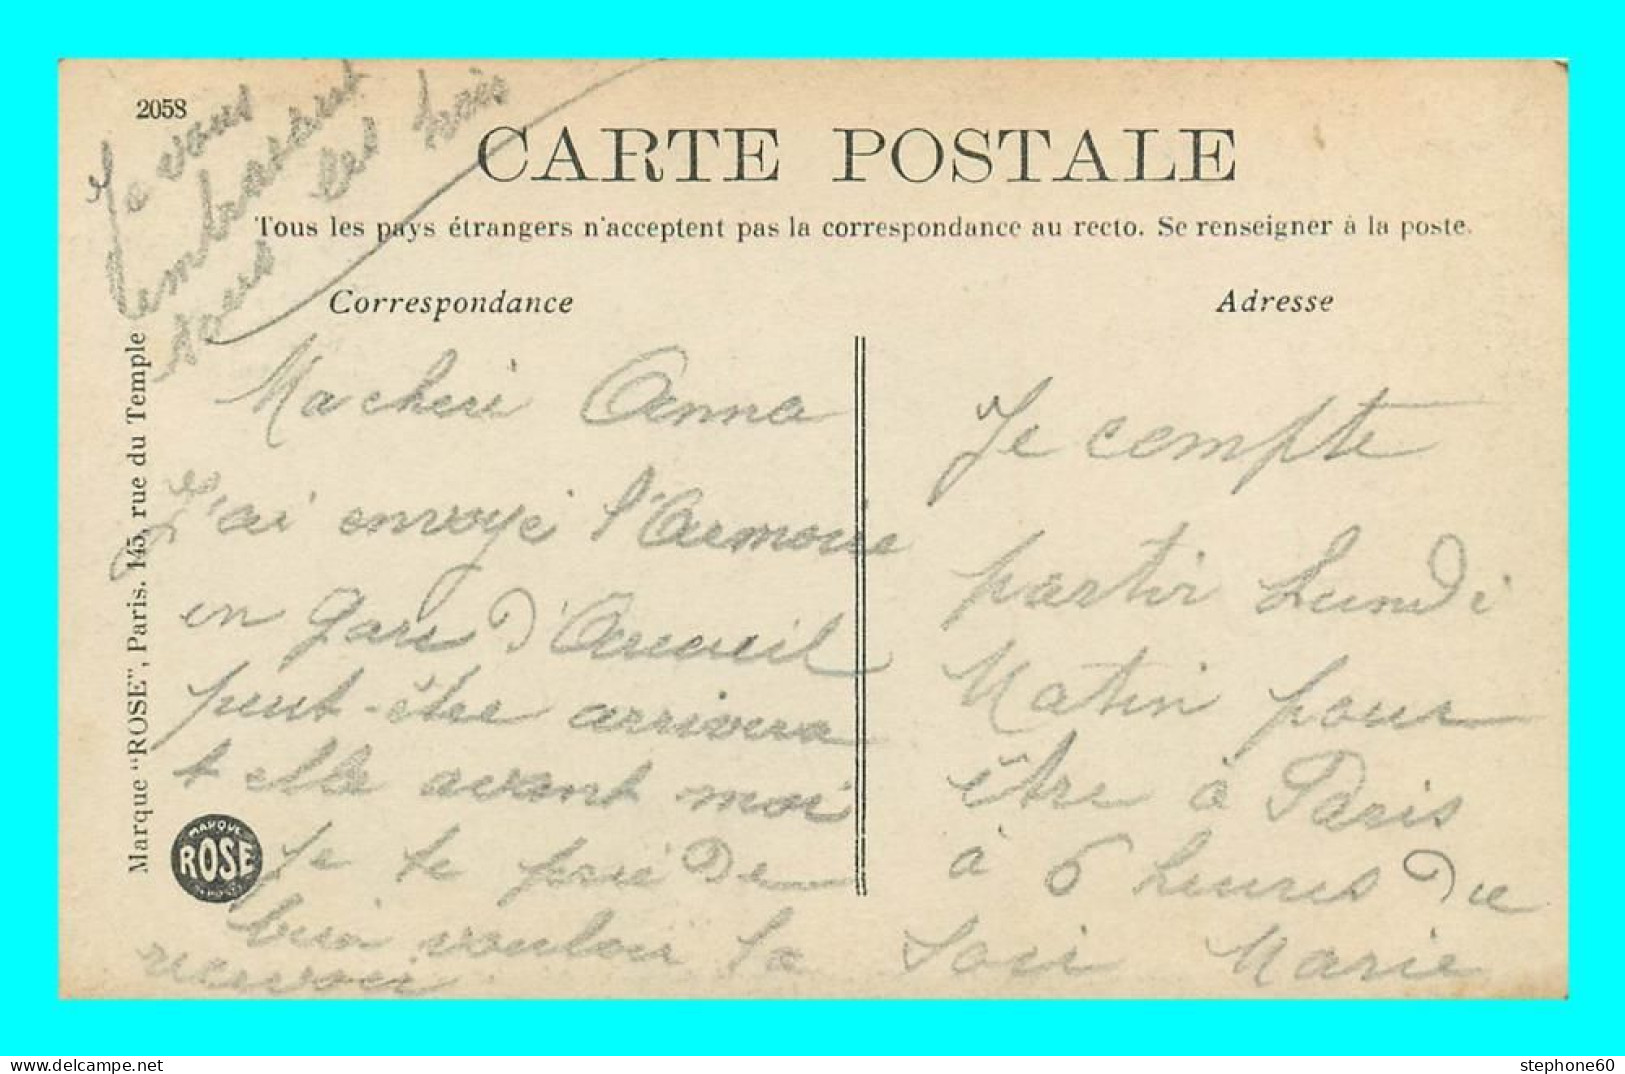 2058
CARTE POSTALE
Tous les pays étrangers n'acceptent pas la correspondance au recto. Se renseigner à la poste.
Correspondance
Adresse
Marque "ROSE", Paris. 145, rue du Temple
MARQUE
ROSE
Je vous
embrassant
tous
les trois
Ma cheri Anna
J'ai envoyé l'Armoire
en gare d'Arcueil
peut-être arrivera
t elle avant moi
Je te prie de
bien vouloir la
recevoir
Je compte
partir Lundi
Matin pour
être à Paris
à 6 heures du
soir Marie
stephone60